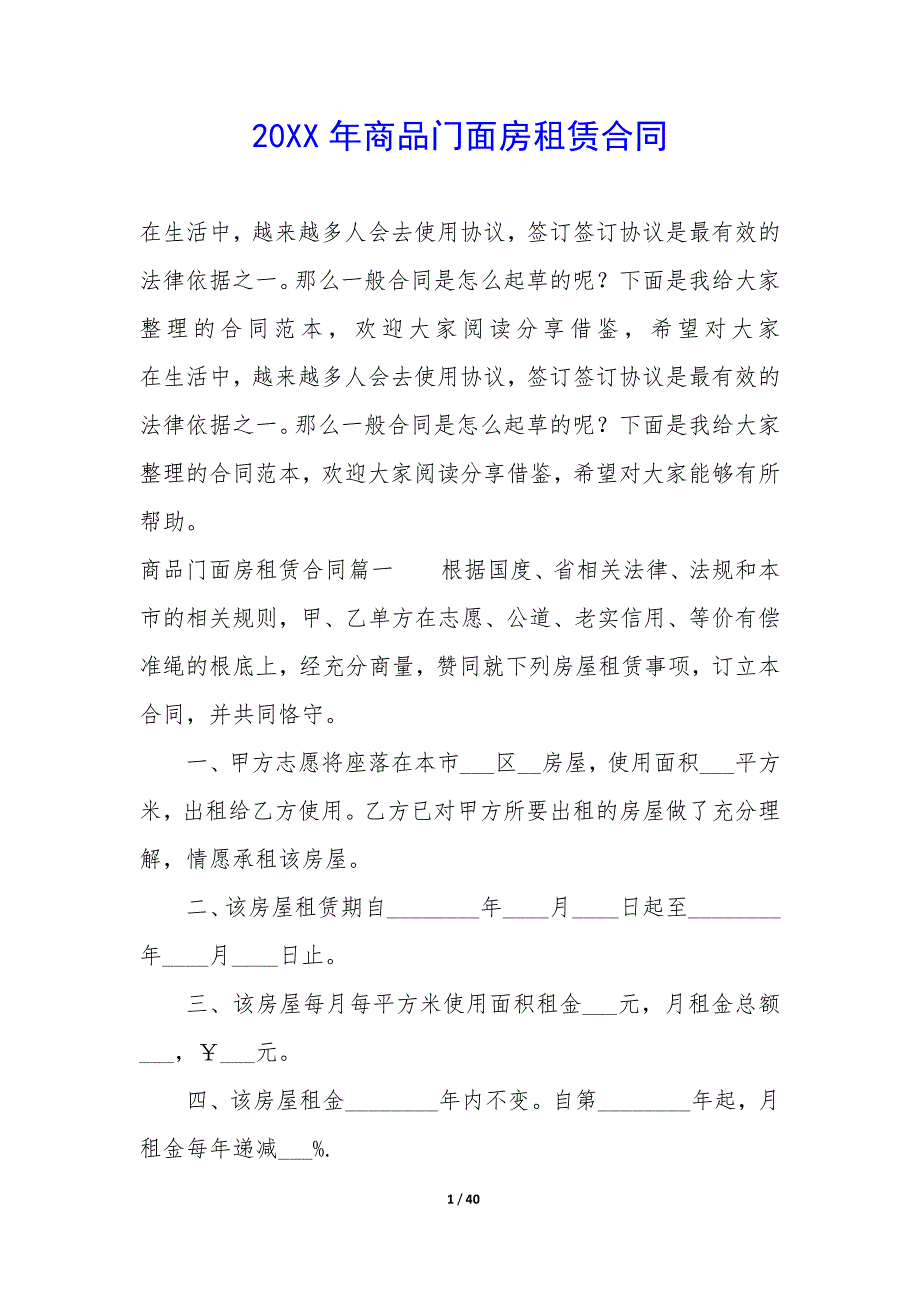 20XX 年商品门面房租赁合同
在生活中，越来越多人会去使用协议，签订签订协议是最有效的
法律依据之一。那么一般合同是怎么起草的呢？下面是我给大家
整理的合同范本，欢迎大家阅读分享借鉴，希望对大家
在生活中，越来越多人会去使用协议，签订签订协议是最有效的
法律依据之一。那么一般合同是怎么起草的呢？下面是我给大家
整理的合同范本，欢迎大家阅读分享借鉴，希望对大家能够有所
帮助。
商品门面房租赁合同篇一　　根据国度、省相关法律、法规和本
市的相关规则，甲、乙单方在志愿、公道、老实信用、等价有偿
准绳的根底上，经充分商量，赞同就下列房屋租赁事项，订立本
合同，并共同恪守。
一、甲方志愿将座落在本市___区__房屋，使用面积___平方
米，出租给乙方使用。乙方已对甲方所要出租的房屋做了充分理
解，情愿承租该房屋。
二、该房屋租赁期自________年____月____日起至________
年____月____日止。
三、该房屋每月每平方米使用面积租金___元，月租金总额
___，￥___元。
四、该房屋租金________年内不变。自第________年起，月
租金每年递减___%.
1 / 40